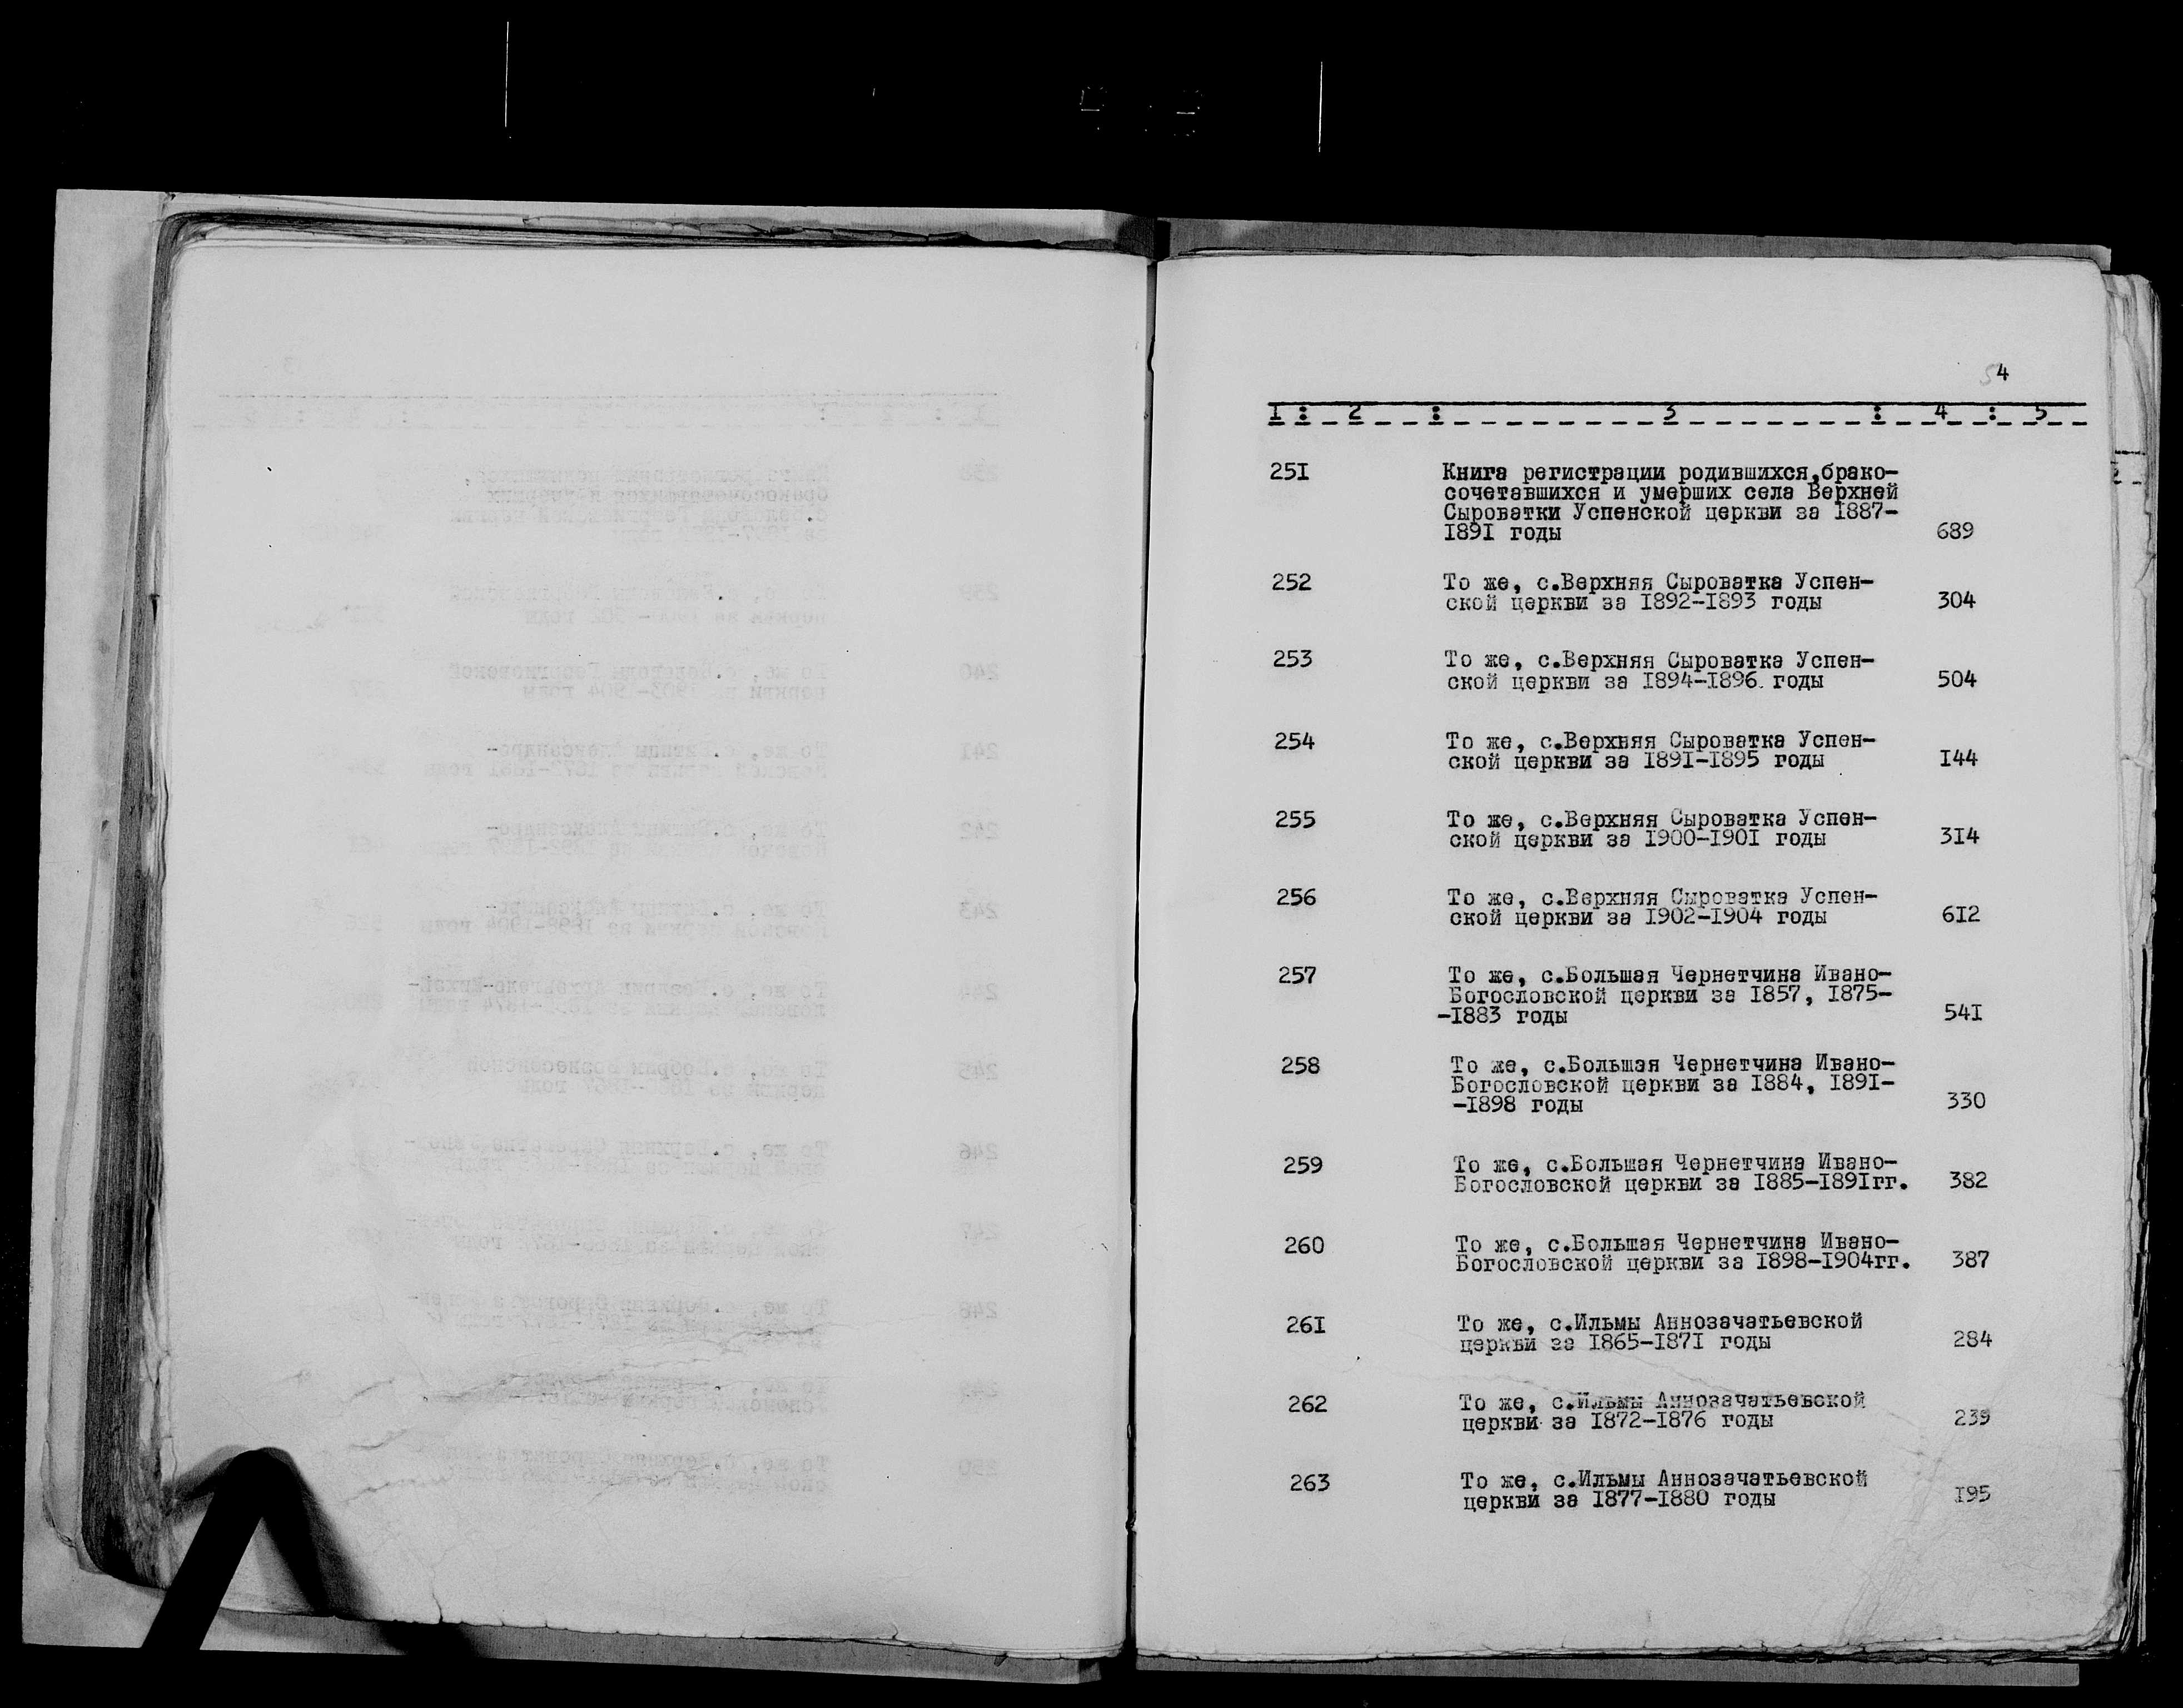 4
1 : 2 : 3 : 4 : 5
251 Книга регистрации родившихся,брако-
сочетавшихся и умерших села Верхней
Сыроватки Успенской церкви за 1887-
1891 годы 689
252 То же, с.Верхняя Сыроватка Успен-
ской церкви за 1892-1893 годы 304
253 То же, с.Верхняя Сыроватка Успен-
ской церкви за 1894-1896 годы 504
254 То же, с.Верхняя Сыроватка Успен-
ской церкви за 1891-1895 годы 144
255 То же, с.Верхняя Сыроватка Успен-
ской церкви за 1900-1901 годы 314
256 То же, с.Верхняя Сыроватка Успен-
ской церкви за 1902-1904 годы 612
257 То же, с.Большая Чернетчина Ивано-
Богословской церкви за 1857, 1875-
-1883 годы 541
258 То же, с.Большая Чернетчина Ивано-
Богословской церкви за 1884, 1891-
-1898 годы 330
259 То же, с.Большая Чернетчина Ивано-
Богословской церкви за 1885-1891гг. 382
260 То же, с.Большая Чернетчина Ивано-
Богословской церкви за 1898-1904гг. 387
261 То же, с.Ильмы Аннозачатьевской
церкви за 1865-1871 годы 284
262 То же, с.Ильмы Аннозачатьевской
церкви за 1872-1876 годы 239
263 То же, с.Ильмы Аннозачатьевской
церкви за 1877-1880 годы 195